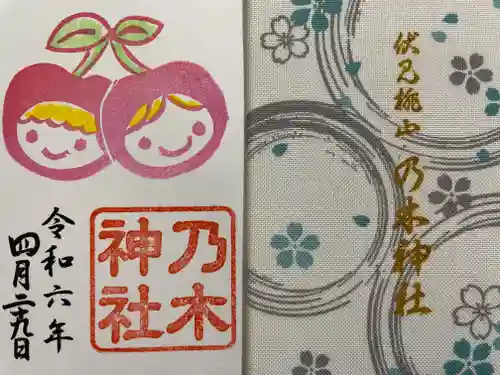 乃木
神社
令和六年
四月二十九日
伏見桃山 乃木神社